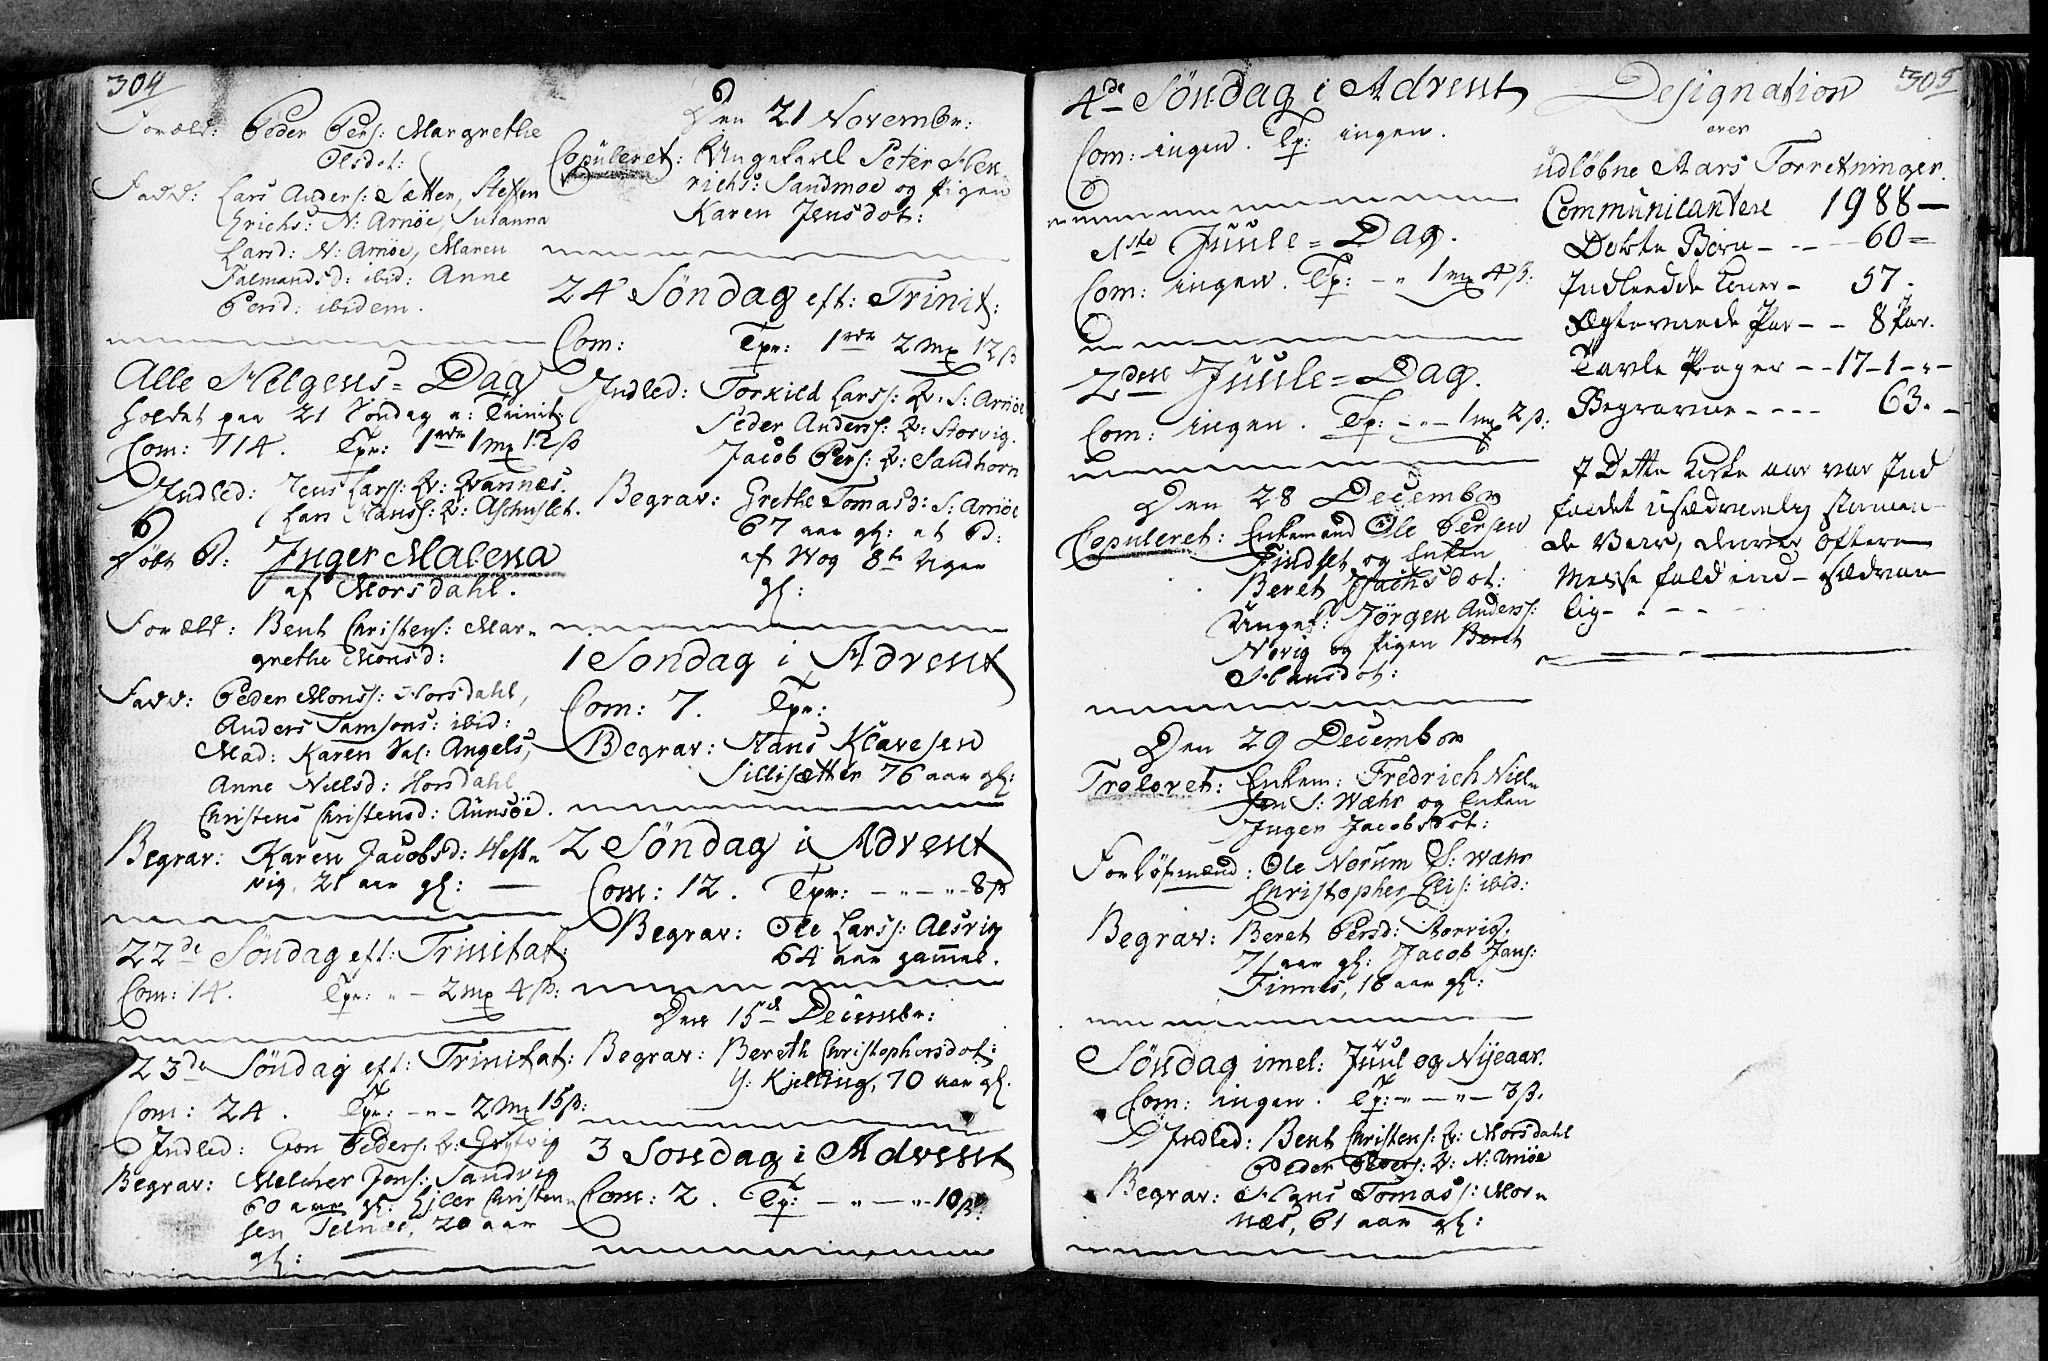 304
Foræld: Peder Pers: Margrethe
Olsdot:
Fadd: Lars Anders: Sætter, Steffen
Erichs: N: Arnöe, Susanna
Larsd: N: Arnöe, Maren
Falmandsd: ibid: Anne
Persd: ibidem.
Alle Helgens= Dag
holdet paa 21 Söndag a: Trinit:
Com: 114. Tpr: 1rdr 1mp 12ß
Indled: Jens Larss: Q: Qvannes.
Lars Hanss: Q: Aschuslet.
Döbt B: Inger Malena
af Morsdahl.
Foræld: Bent Christens: Mar-
grethe Monsd:
Fadd: Peder Monss: Morsdahl,
Anders Samsons: ibid:
Mad: Karen Sal: Angels,
Anne Nielsd: Morsdahl
Christens Christensd: Aunsöe.
Begrav: Karen Jacobsd: Hest-
vig, 21 aar gl:
22de Söndag eft: Trinitat:
Com: 14. Tpr: " - 2mp 4ß:
23de Söndag eft: Trinitat:
Com: 24. Tpr: - " - 2mp 15ß:
Indled: Jon Peders: Q:
Begrav: Melcher Jons: Sandvig
60 aar gl: Ejler Christen-
sen Telnes, 20 aar
gl:
Den 21 Novembr:
Copuleret: Ungekarl Peter Hen
richs: Sandmoe og Pigen
Karen Jensdot:
24 Söndag eft: Trinit:
Com: Tpr: 1rdr 2mp 12ß
Indled: Torkild Larss: Q: S: Arnöe
Peder Anderss: Q: Storvig.
Jacob Pers: Q: Sandhorn
Begrav: Grethe Tomasd: S: Arnöe
67 aar gl: et B:
af Wog 8te Uger
gl:
1 Söndag i Advent
Com: 7. Tpr:
Begrav: Hans Klavesen
Sillisætter 76 aar gl:
2 Söndag i Advent
Com: 12. Tpr: - " - " - 8ß
Begrav: Ole Larss: Alsvig
64 aar gammel.
Den 15de Decembr:
Begrav: Bereth Christophersdot:
Y: Kjelling, 70 aar gl.
3 Söndag i Advent
Com: 2. Tp: - " - " - 10ß:
4de Söndag i Advent
Com: ingen. Tp: ingen.
1ste Juule= Dag.
Com: ingen. Tp: - " 1mp 4ß:
2den Juule= Dag.
Com: ingen. Tp: - " - 1mp 2ß:
Den 28 Decembr
Copuleret: Enkemand Ole Persen
Findset og Enken
Beret Isachsdot:
Ungek: Jörgen Anderss:
Norvig og Pigen Beret
Hansdot:
Den 29 Decembr
Troloret: Enkem: Fredrich Niel-
sen S: Wæhr og Enken
Inger Jacobsdot:
Forlöfmænd: Ole Norum S: Wæhr
Christopher Elis: ibid:
Begrav: Beret Persd: Storvig,
71 aar gl: Jacob Jans:
Finnes, 16 aar gl:
Söndag imel: Juul og Nyeaar.
Com: ingen. Tp: - " - " - 3ß.
Indled: Bent Christens: Q: Morsdahl
Peder Pers: Q: N: Arnöe
Begrav: Hans Tomass: Mor-
næs, 61 aar gl:
305
Designation
over
udlöbne Aars Forretninger.
Communicantere 1988 -
Döbte Börn - - - 60 =
Indleedde Koner - 57 -
Ægteviede Par - - 8 Par.
Tavle Penger - - 17-1-"-
Begravne - - - - 63. -
I Dette Kirke aar var Ind
faldet usædvanlig stormen-
de Veir, derfor oftere
Messe fald end sædvan-
lig -